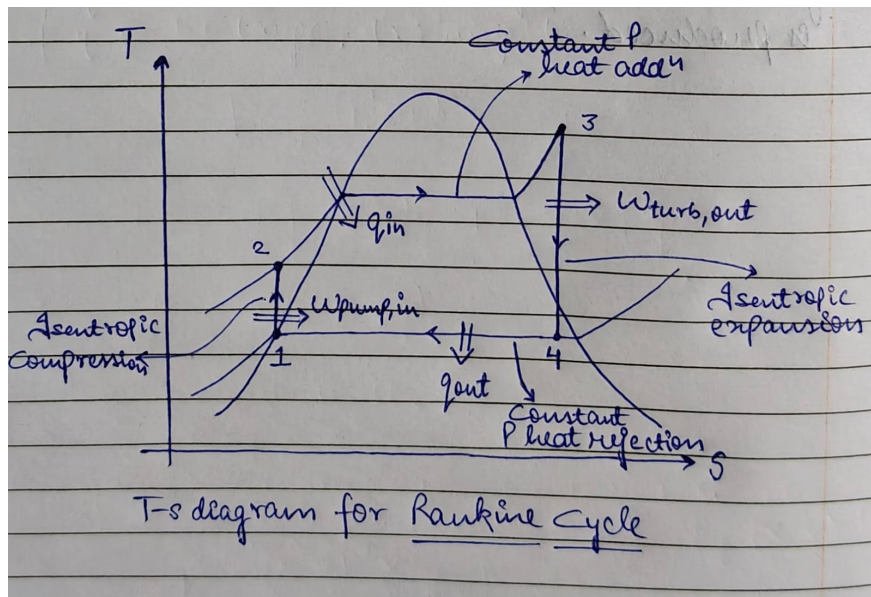 T
Constant P
heat addⁿ
3
qin
Wturb,out
2
Wpump,in
Isentropic
compression
Isentropic
expansion
1
4
qout
Constant
P heat rejection
S
T-s diagram for Rankine Cycle